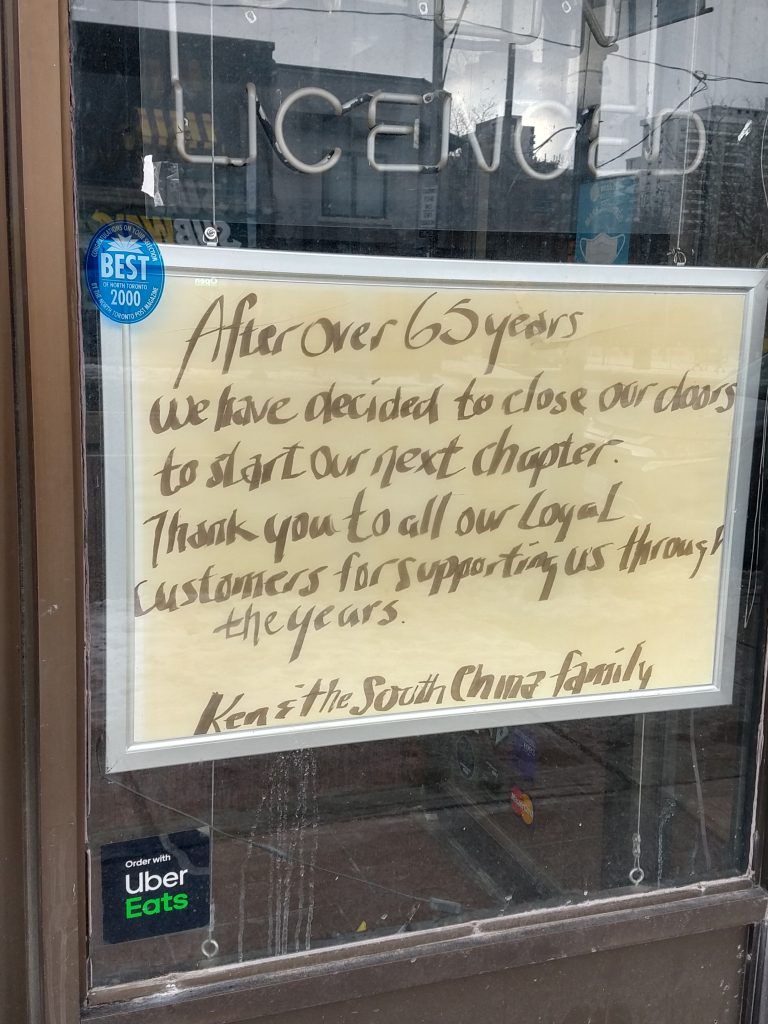 LICENCED
SUBWAY
CONGRATULATIONS ON YOUR SELECTION
BEST
OF NORTH TORONTO
2000
BY THE NORTH TORONTO POST MAGAZINE
After over 65 years
we have decided to close our doors
to start our next chapter.
Thank you to all our Loyal
customers for supporting us through
the years.
Ken & the South China family
Order with
Uber
Eats